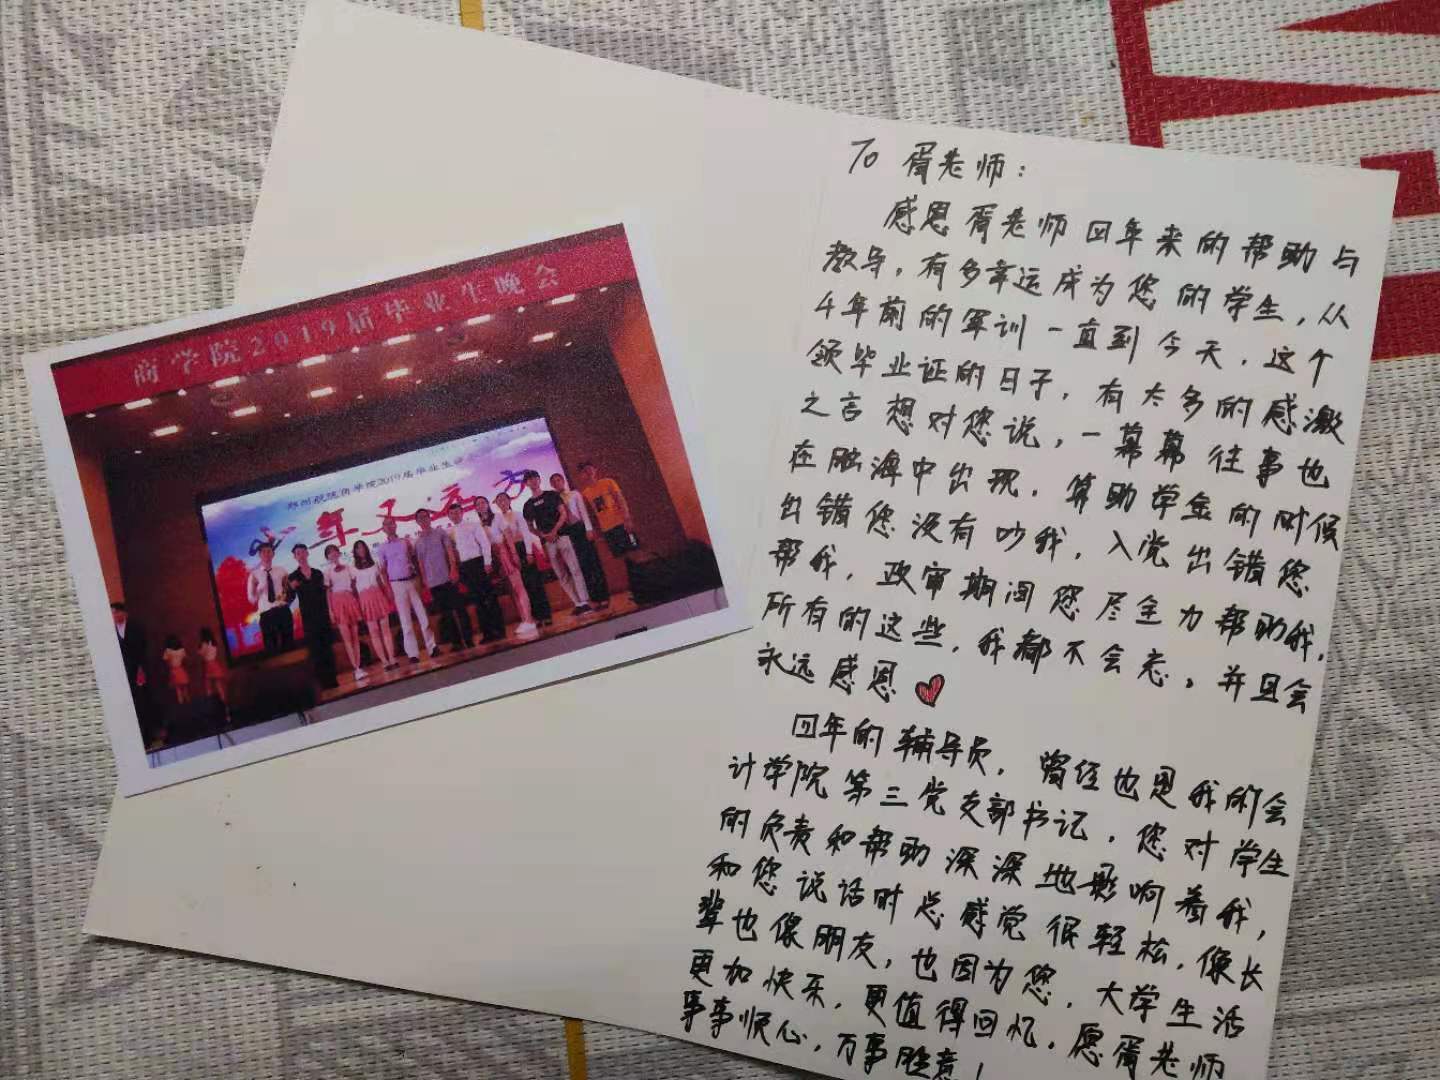 商学院2019届毕业生晚会
郑州航院商学院2019届毕业生晚会
To 胥老师：
感恩胥老师四年来的帮助与
教导，有多幸运成为您的学生，从
4年前的军训一直到今天，这个
领毕业证的日子，有太多的感激
之言想对您说，一幕幕往事也
在脑海中出现，算助学金的时候
出错您没有吵我，入党出错您
帮我，政审期间您尽全力帮助我，
所有的这些，我都不会忘，并且会
永远感恩
四年的辅导员，曾经也是我的会
计学院第三党支部书记，您对学生
的负责和帮助深深地影响着我，
和您说话时总感觉很轻松，像长
辈也像朋友，也因为您，大学生活
更加快乐，更值得回忆，愿胥老师
事事顺心，万事胜意！